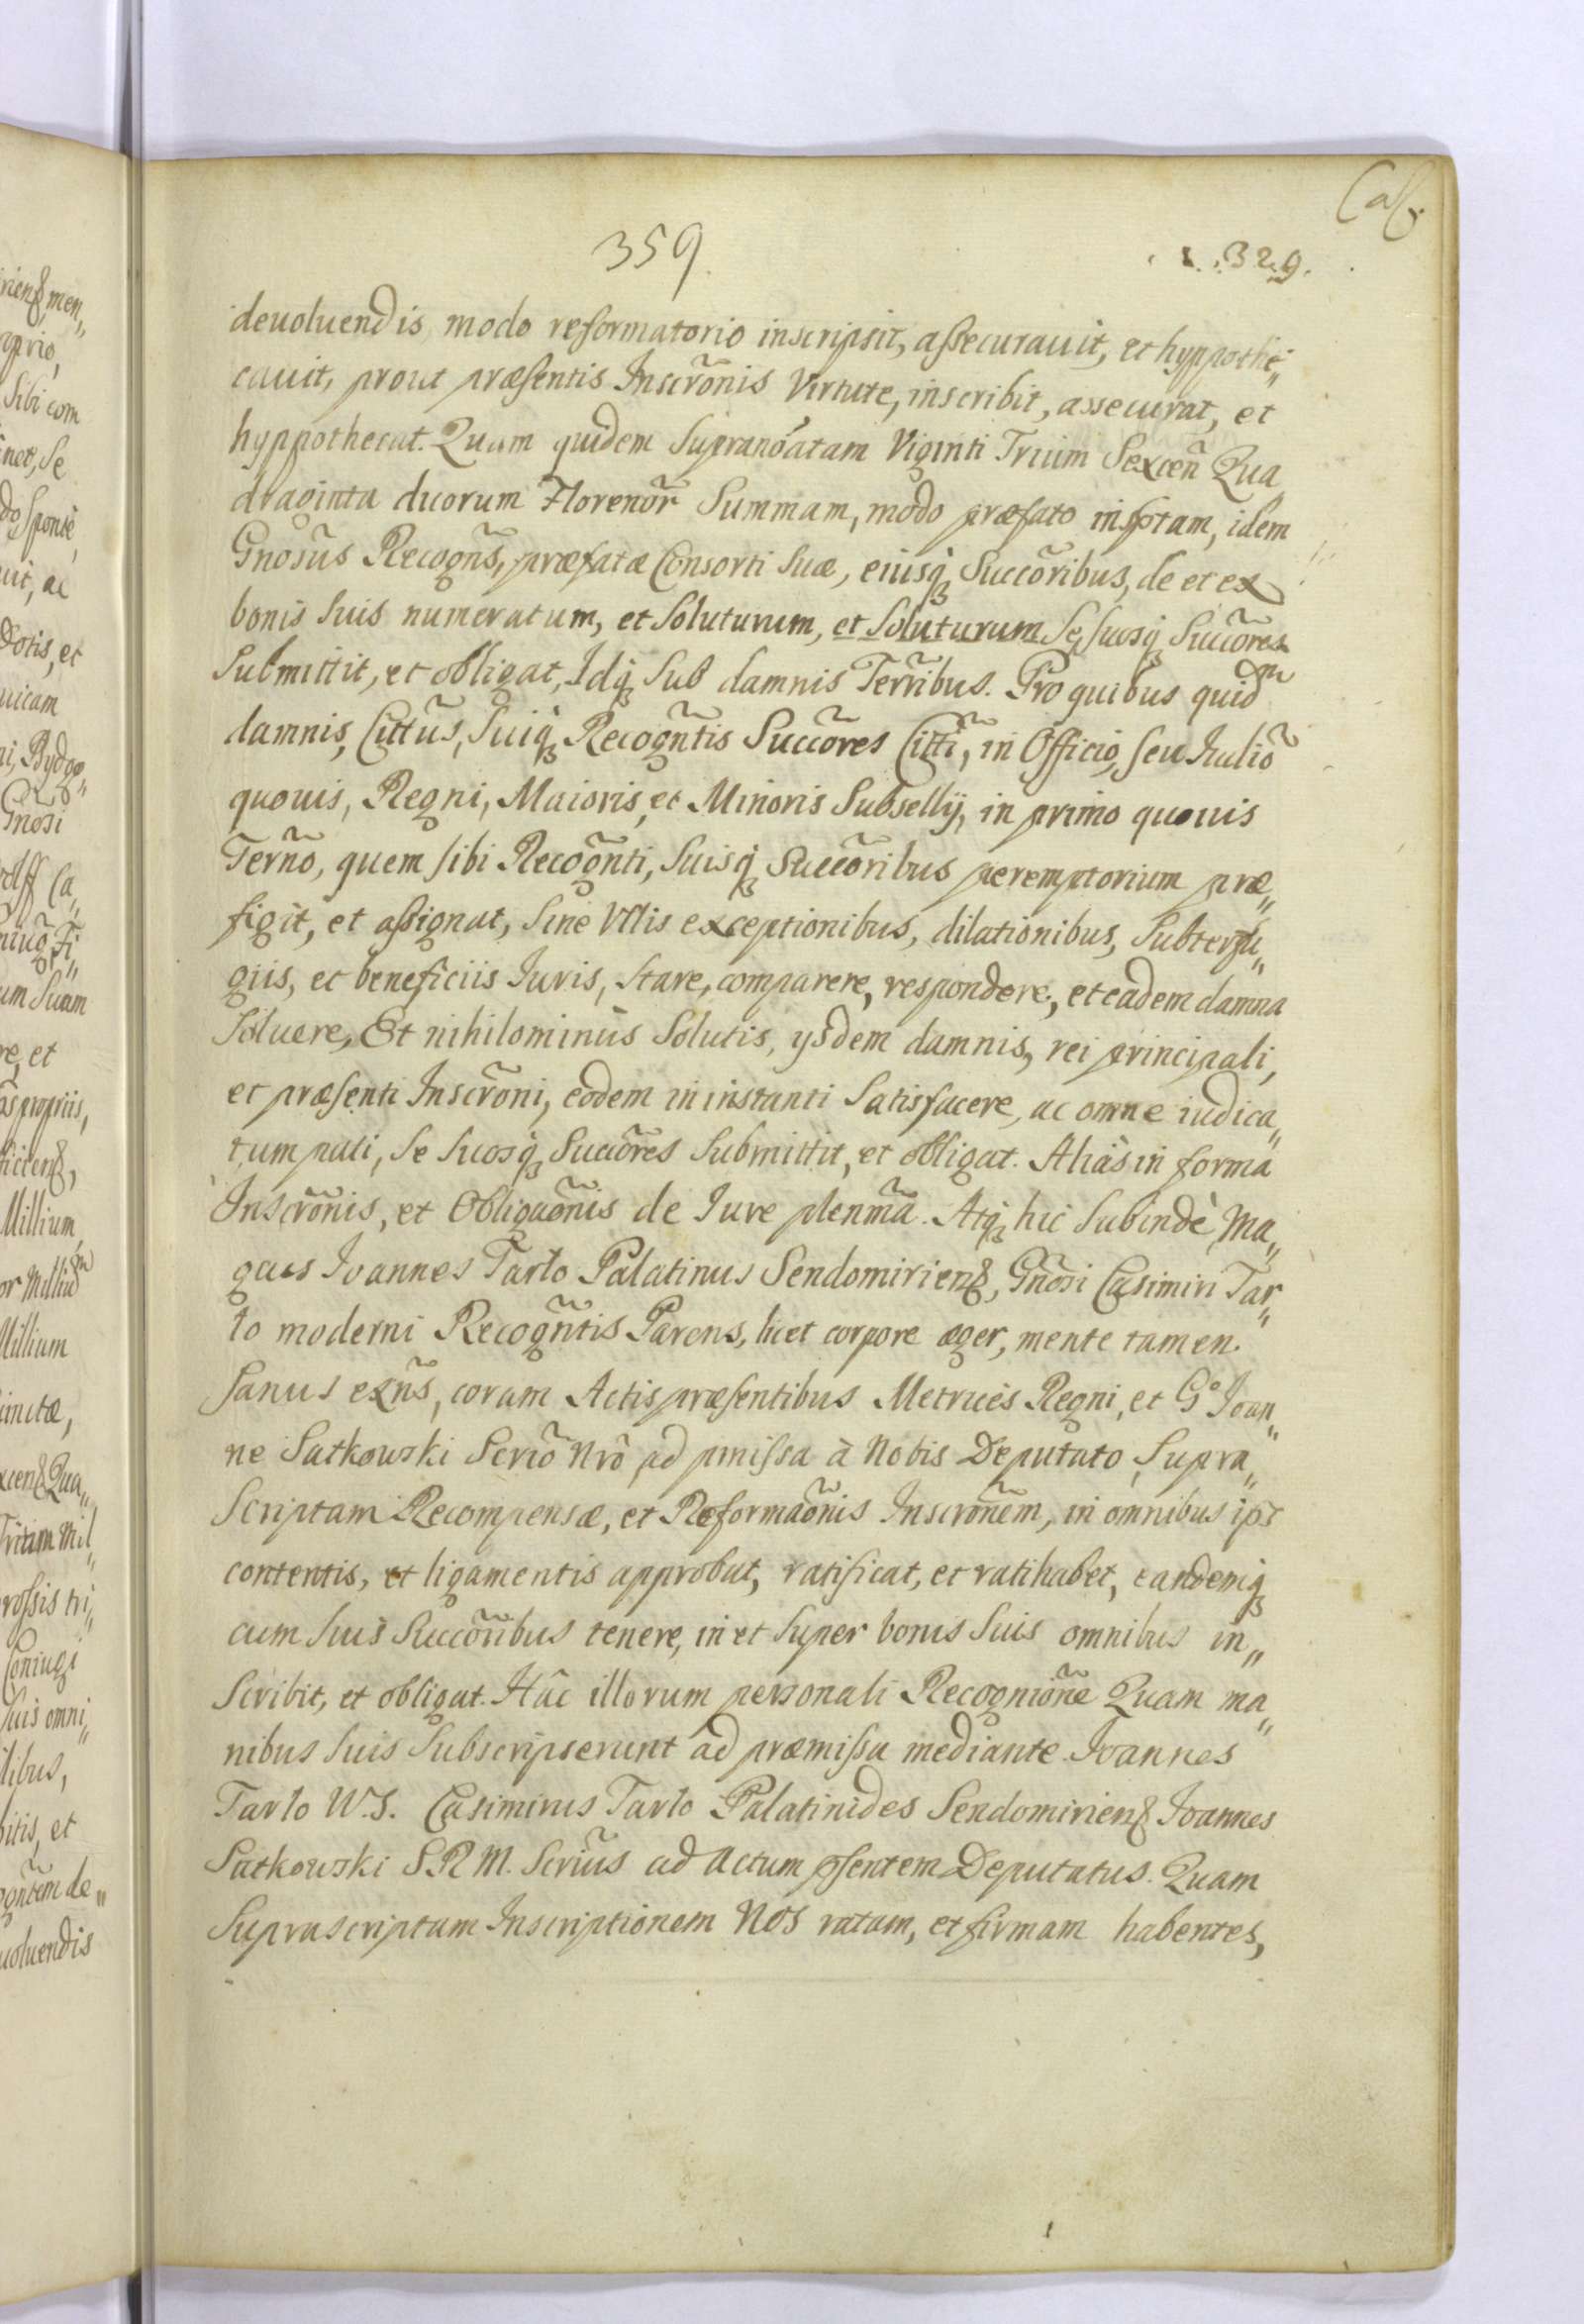 359.
329.
deuoluendis modo reformatorio inscripsit, assecurauit, et hyppothe„
cauit, prout præsentis Inscrõnis Virtute, inscribit, assecurat, et
hyppothecat. Quam quidem Supranoãtam Viginti Trium Sexceñ Qua„
draginta duorum Florenor̃ Summam, modo præfato insptam, idem
Gnosũs Recogñs, præfatæ Consorti Suæ, eiusq́ Succõribus, de et ex
bonis Suis numeratum, et Soluturum, et Soluturum Se, Suosq́ Succõres
Submittit, et obligat, Idq́ Sub damnis Terr̃ibus. Pro quibus quidm
damnis, Cittũs, Suiq́ Recogñtis Succõres Citti, in Officio, seu Iudiõ
quouis, Regni, Maioris, et Minoris Subsellij, in primo quouis
Terñno, quem sibi Recogñti, Suisq́ Succõribus peremptorium præ„
figit, et assignat, Sine Vllis exceptionibus, dilationibus, Subterfu„
giis, et beneficiis Iuris, Stare, comparere, respondere, et eadem damna
Soluere, Et nihilominùs Solutis, ysdem damnis, rei principali,
et præsenti Inscrõni, eodem in instanti Satisfacere, ac omne iudica„
tum pati, Se Suosq́ Succõres Submittit, et obligat. Aliàs in forma
Inscrõnis, et Obligaõnis de Iure plenmã. Atq́ hic Subindè Ma„
gcus Ioannes Tarło Palatinus Sendomiriens, Gnõsi Casimiri Tar„
ło moderni Recogñtis Parens, licet corpore æger, mente tamen
Sanus exñs, coram Actis præsentibus Metrices Regni, et Go Ioan„
ne Satkowski Scriõ Nrõ ad pmissa à Nobis Deputato, Supra„
Scriptam Recompensæ, et Reformaõnis Inscrõnem, in omnibus ips
contentis, et ligamentis approbat, ratificat, et ratihabet, eandemq́
cum Suis Succõribus tenere, in et Super bonis Suis omnibus in„
Scribit, et obligat. Hâc illorum personali Recogniõne Quam ma„
nibus Suis Subscripserunt ad præmissa mediante. Ioannes
Tarło W.S. Casimirus Tarło Palatinides Sendomiriens Ioannes
Satkowski S.R.M. Scriũs ad Actum psentem Deputatus. Quam
Suprascriptam Inscriptionem Nos ratam, et firmam habentes,